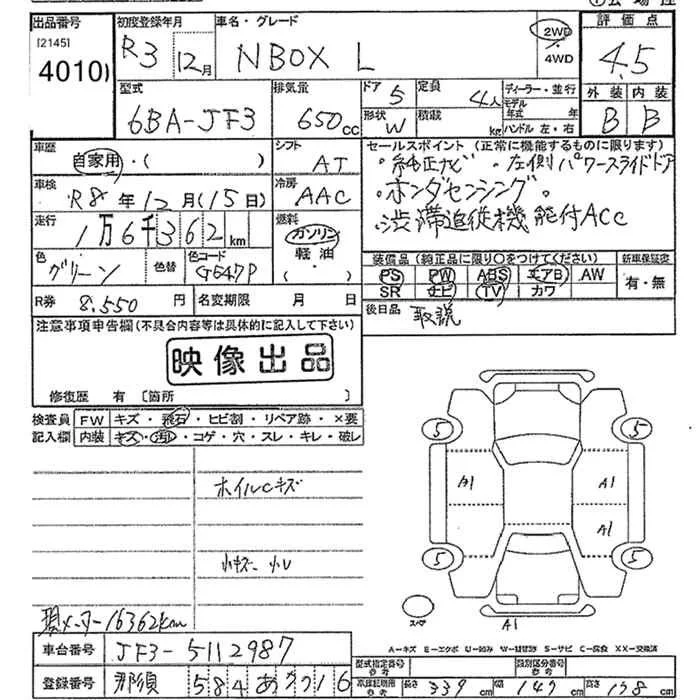 出品番号 初度登録年月 車名・グレード 評価点
[2145] R3 12月 NBOX L 2WD 4.5
4010 4WD
外装 内装
型式 排気量 ドア 5 定員 4人 ディーラー・並行
6BA-JF3 650cc 形状 W 積載 kg モデル年式 年式
ハンドル 左・右 B B
車歴 シフト セールスポイント (正常に機能するものに限ります)
自家用・( ) AT ・純正ナビ ・左側パワースライドドア
車検 冷房 ・ホンダセンシング。
R8年12月(15日) AAC 渋滞追従機能付ACC
走行 燃料
1万6千362km ガソリン
軽油
・( )
色 色替 色コード 装備品 (純正品に限り○をつけてください) 新車保証書
グリーン G647P PS PW ABS エアB AW 有・無
SR ナビ TV カワ
R券 8.550円 名変期限 月 日 後日品 取説
注意事項申告欄(不具合内容等は具体的に記入して下さい)
映像出品
修復歴 有 〔箇所 〕
検査員 FW キズ・飛石・ヒビ割・リペア跡・×要
記入欄 内装 キズ・汚れ・コゲ・穴・スレ・キレ・破レ
5 5
A1 A1
ホイルCキズ
A1
小キズ 小U
5 5
現メーター16362km
スペア A1
A-キズ E-エクボ U-凹み W-補修跡 S-サビ C-腐食 XX-交換済
車台番号 JF3-5112987 型式指定番号 参考 類別区分番号 参考
登録番号 那須 584 あ 7716 車庫証明用 参考 長さ 339cm 幅 147cm 高さ 178cm